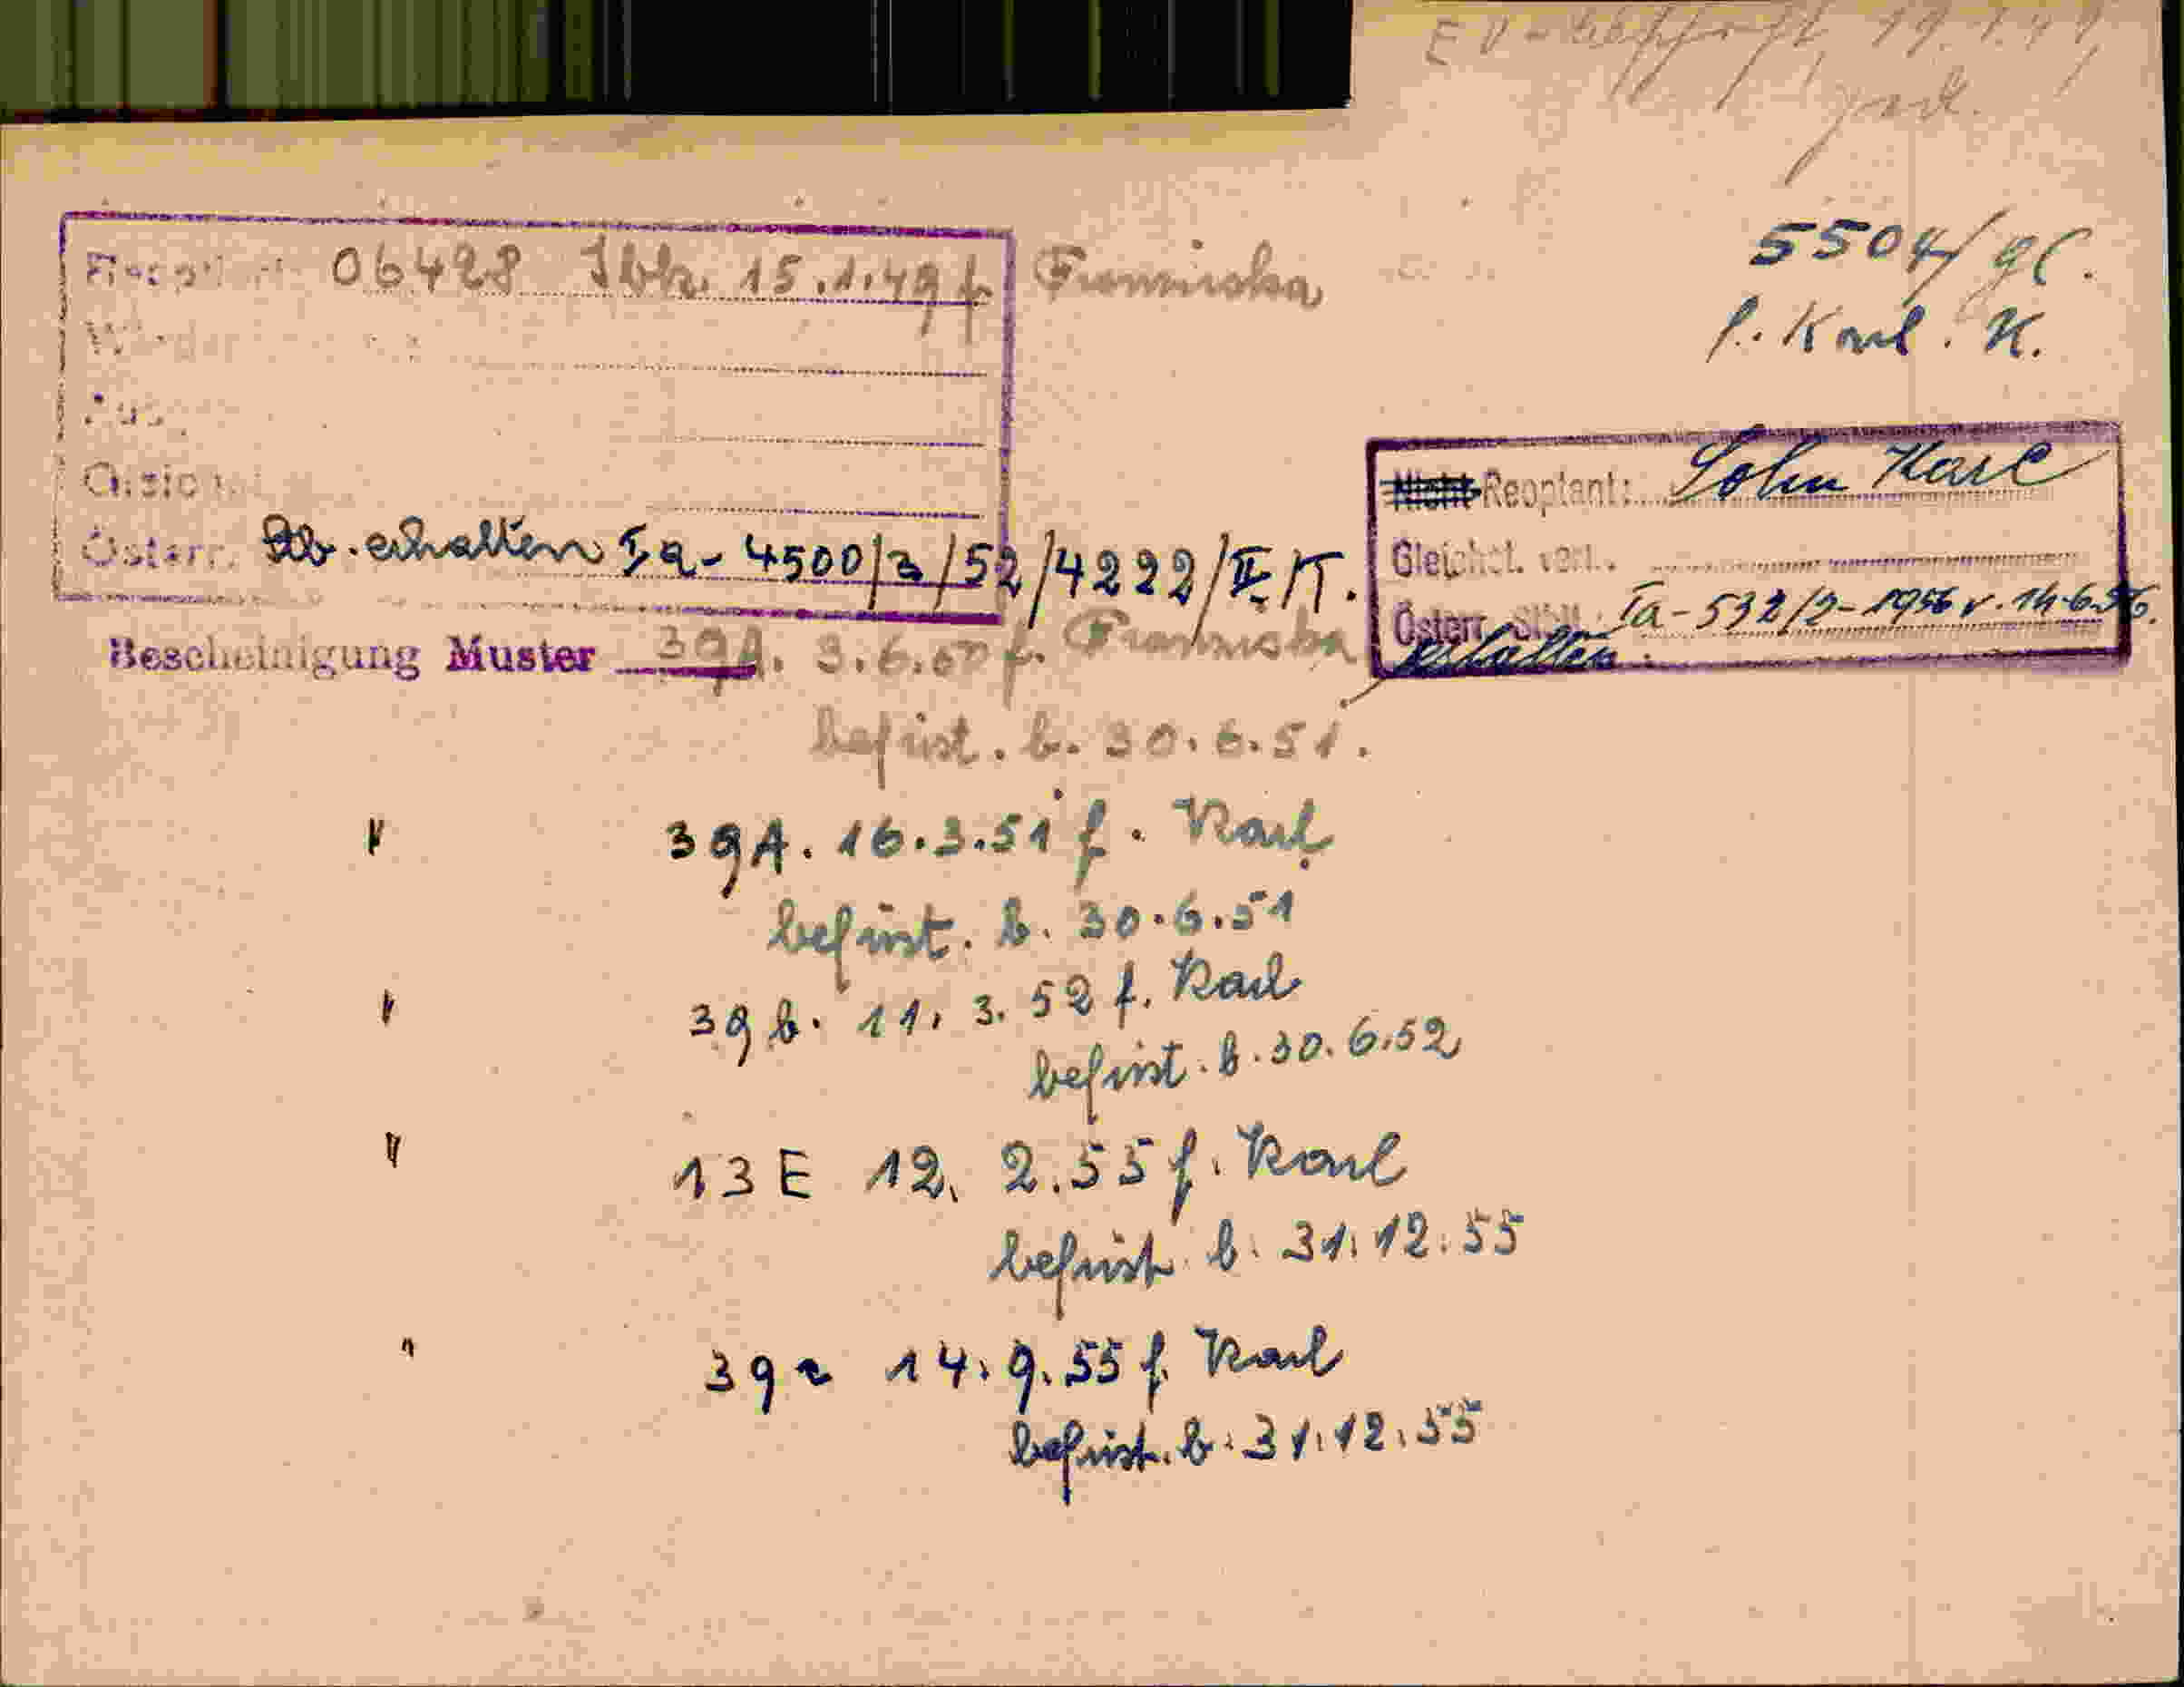 19.1.49
5504/
f. Karl. K.
06428 Ibk. 15.1.49 f. Franziska
Reoptant: Sohn Karl
Gleichst. verl.
Österr. erhalten Ia-4500/2/52/4222/II/T.
Österr. Ia-532/2-1956 v. 14.6.56.
erhalten.
Bescheinigung Muster 39A. 3.6.50 f. Franziska
befrist. b. 30.6.51.
" 39A. 16.3.51 f. Karl
befrist. b. 30.6.51
" 39b. 11.3.52 f. Karl
befrist. b. 30.6.52
" 13E 12.2.55 f. Karl
befrist b. 31.12.55
" 39a 14.9.55 f. Karl
befrist. b. 31.12.55